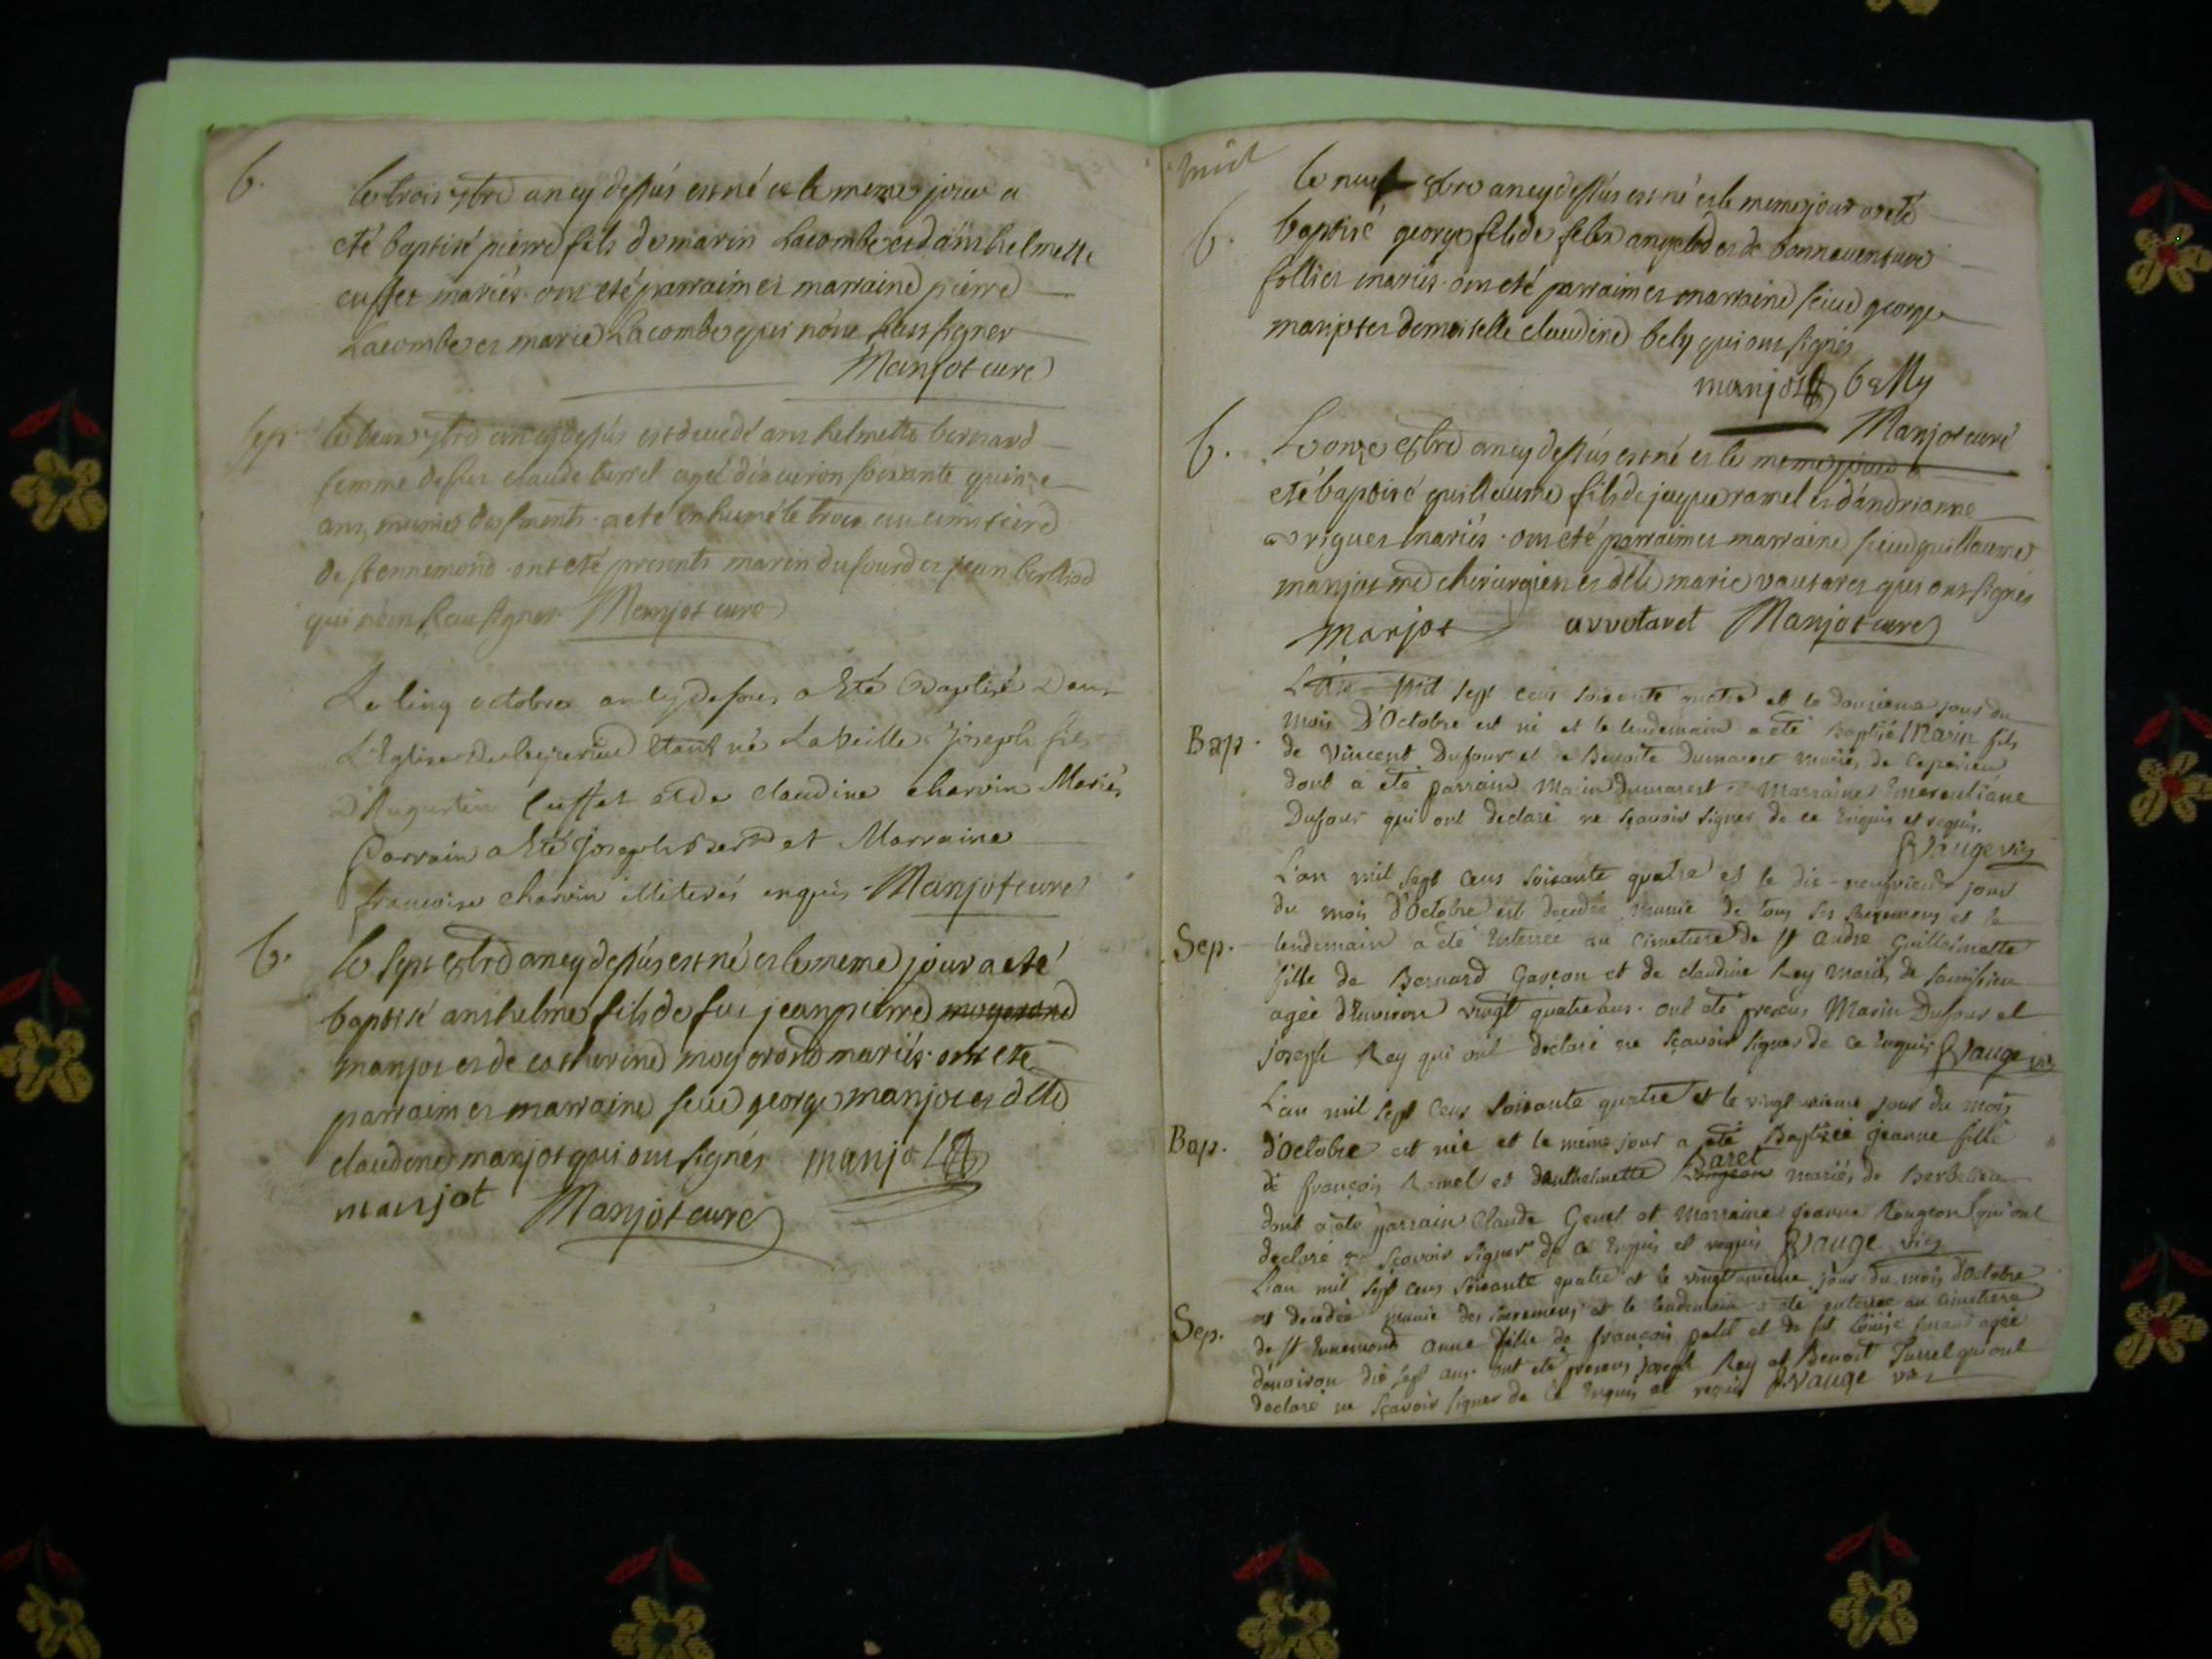 b.
le trois 7bre an cy dessus est né et le meme jour a
eté baptisé pierre fils de marin Lacombe et d'anthelmette
cusset mariés. ont eté parraim et marraine pierre
Lacombe et marie Lacombe qui n'ont sceu signer
Manjot curé
Sep.
le deux 7bre an cy dessus est decedé anthelmette bernard
femme de feu claude turrel ageé d'environ soixante quinze
ans, munie des sments. a eté inhumé le trois au cimetiere
de st ennemond. ont eté presents marin dufour et jean
qui n'ont sceu signer. Manjot curé
Le Cinq octobre an cy dessus a Eté Baptisé Dans
L'Eglise de Ceyzerieu Etant né La veille Joseph fils
D'Augustin Cusset et de claudine charvin Mariés
Parrain a Eté Joseph et Marraine
francoise charvin illiterés enquis. Manjot curé
b.
le sept 8bre an cy dessus est né et le meme jour a eté
baptisé anthelme fils de feu jean pierre
manjot et de catherine moy mariés. ont eté
parraim et marraine sieur george manjot et dlle
claudine manjot qui ont signés manjot
manjot Manjot curé
le neuf 8bre an cy dessus est né et le meme jour a eté
b.
baptisé george fils de felix et de bonneuenture
follier mariés. ont eté parraim et marraine sieur george
manjot et demoiselle claudine bely qui ont signés
manjot belly
Manjot curé
b.
Le onze 8bre an cy dessus est né et le meme jour a
eté baptisé guillaume fils de jaque ramel et d'andrianne
mariés. ont eté parraim et marraine sieur guillaume
manjot me chirurgien et dlle marie vautaret qui ont signés
manjot Manjot curé
L'an Mil Sept cens soixante quatre et le douzieme jour du
mois D'Octobre est né et le lendemain a eté Baptisé Marin fils
Bap.
de Vincent Dufour et de Benoite Dumarest mariés de Ceyzerieu
dont a eté parrain Marin Dumarest et Marraine Emerentiane
Dufour qui ont declaré ne sçavoir signer de ce Enquis et requis.
Vauge vic
L'an mil sept cens soixante quatre et le dix-neufvieme jour
du mois D'Octobre est decedée munie de tous ses sacremens et le
Sep.
lendemain a eté Enterrée au Cimetiere de st andré Guillelmette
fille de Bernard Garçon et de claudine Rey mariés de
agée d'Environ vingt quatre ans. ont eté presens Marin Dufour et
joseph Rey qui ont declaré ne sçavoir signer de ce Enquis Vauge vic
L'an mil sept cens soixante quatre et le vingt jour du mois
Bap.
d'Octobre est née et le même jour a eté Baptisée jeanne fille
de françois Ramel et d'anthelmette Baret mariés de
dont a eté parrain Claude Genet et Marraine jeanne Rougeon qui ont
declaré ne sçavoir signer de ce Enquis et requis Vauge vic
L'an mil sept cens soixante quatre et le vingt unieme jour du mois d'Octobre
est decedée munie des sacremens et le lendemain a eté enterrée au cimetiere
Sep.
de st Ennemond anne fille de françois petit et de fut Louise agée
d'environ dix sept ans. ont eté presens joseph Rey et Benoit Turrel qui ont
declaré ne sçavoir signer de ce Enquis et requis Vauge vic